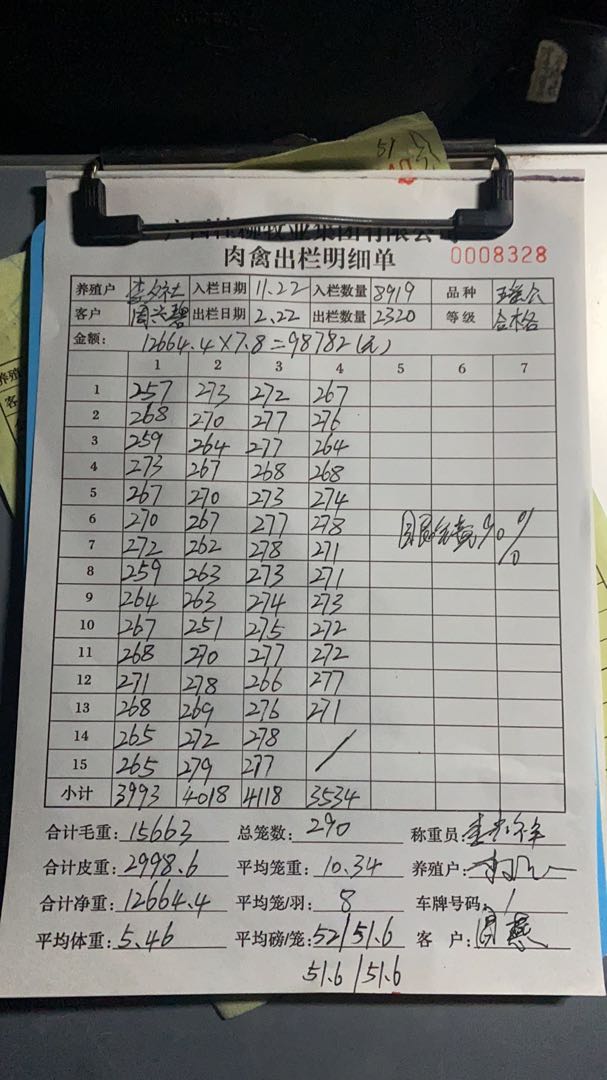 肉禽出栏明细单 0008328
养殖户 入栏日期 11.22 入栏数量 8919 品种
客户 周兴碧 出栏日期 2.22 出栏数量 2320 等级 合格
金额: 12664.4×7.8=98782(元)
1 2 3 4 5 6 7
1 257 273 272 267
2 268 270 277 276
3 259 264 277 264
4 273 267 268 268
5 267 270 273 274
6 270 267 277 278 90%
7 272 262 278 271
8 259 263 273 271
9 264 263 274 273
10 267 251 275 272
11 268 270 277 272
12 271 278 266 277
13 268 269 276 271
14 265 272 278 /
15 265 279 277
小计 3993 4018 4118 3534
合计毛重: 15663 总笼数: 290 称重员:
合计皮重: 2998.6 平均笼重: 10.34 养殖户:
合计净重: 12664.4 平均笼/羽: 8 车牌号码: /
平均体重: 5.46 平均磅/笼: 52/51.6 客 户: 周燕
51.6/51.6